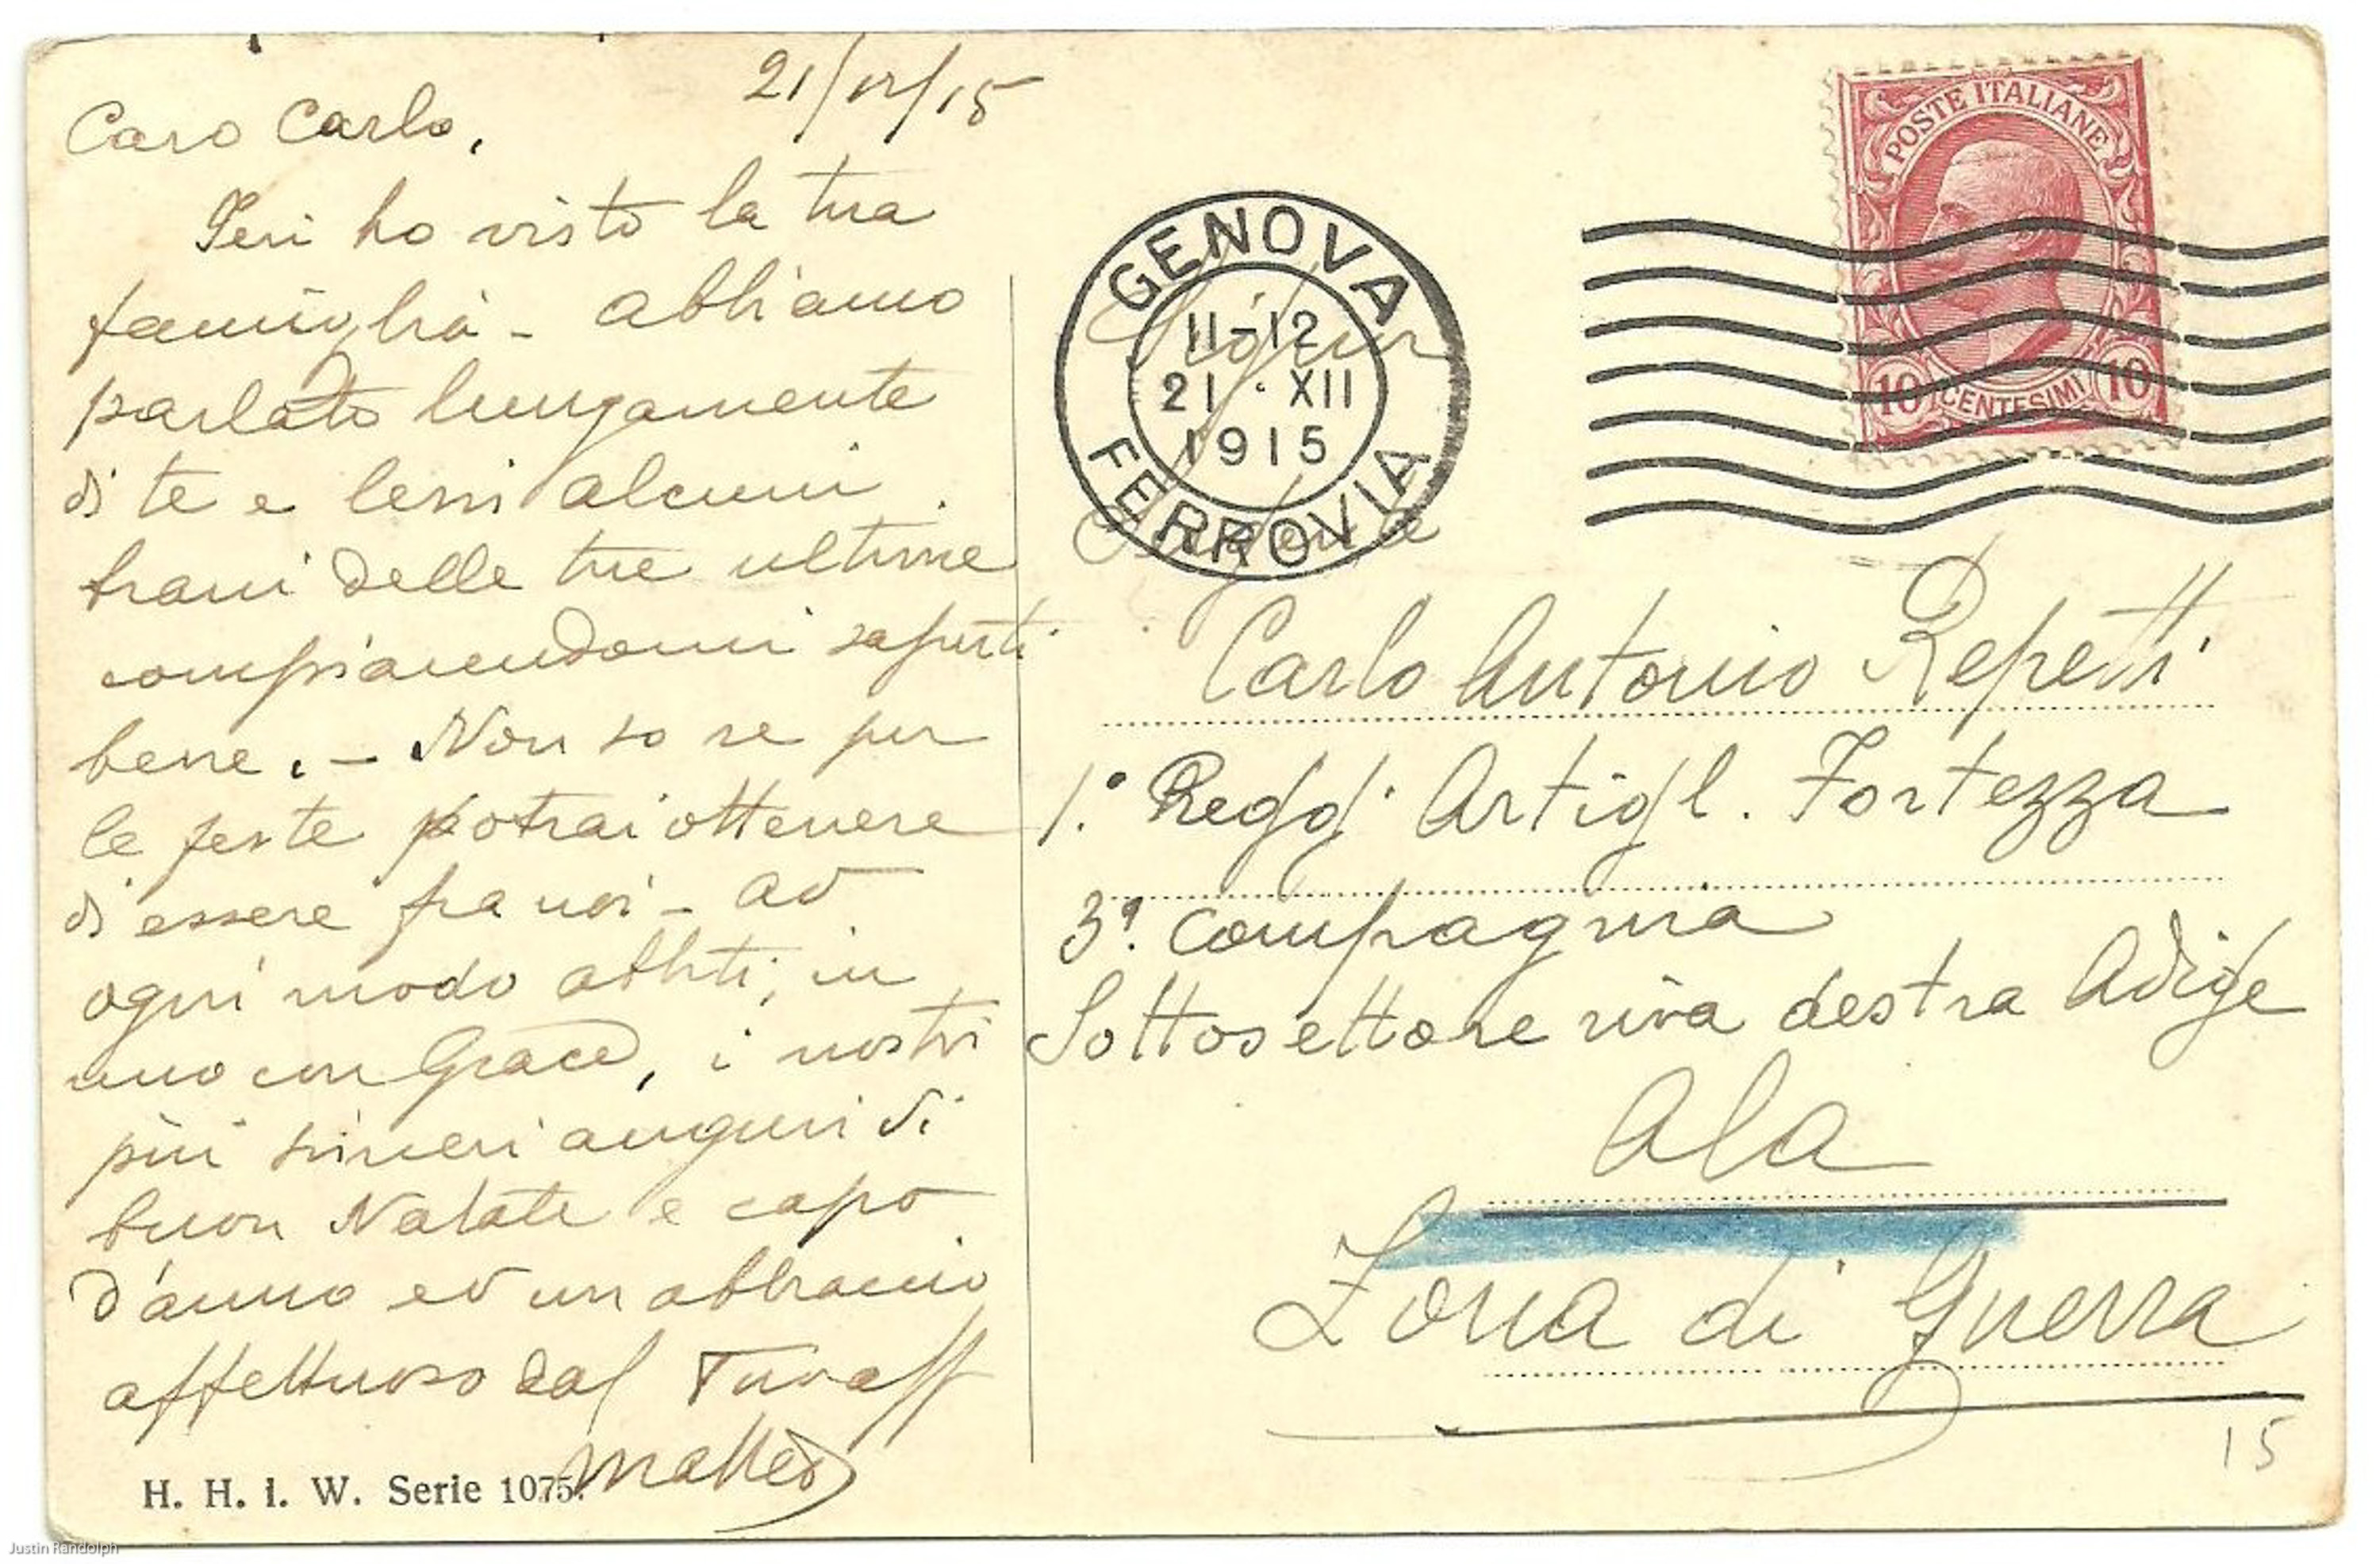 21/12/15
Caro Carlo,
Ieri ho visto la tua
famiglia - abbiamo
parlato lungamente
di te e lessi alcuni
brani delle tue ultime
compiacendomi saperti
bene. - Non so se per
le feste potrai ottenere
di essere fra noi - ad
ogni modo abbiti, in
uno con Grace, i nostri
più sinceri auguri di
buon Natale e capo
d'anno ed un abbraccio
affettuoso dal tuo aff
Matteo
H. H. i. W. Serie 1075.
POSTE ITALIANE
10 CENTESIMI 10
GENOVA
11-12
21 · XII
1915
FERROVIA
Signor
Carlo Antonio Repetti
1º. Regg. Artigl. Fortezza
3ª. Compagnia
Sottosettore riva destra Adige
Ala
Zona di Guerra
15
Justin Randolph